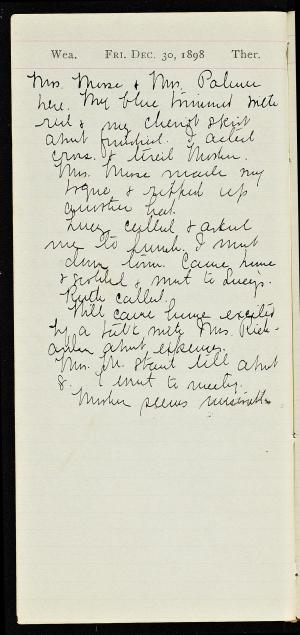 Wea. FRI. DEC. 30, 1898 Ther.
Mrs. Morse & Mrs. Palmer
here. My blue trimmed with
red & my cheviot skirt
about finished. I acted
cross & tired Mother.
Mrs. Morse made my
toque & ripped up
another hat.
Lucy called & asked
me to lunch. I went
down town. Came home
& rested & went to Lucy's.
Ruth called.
Will came home excited
by a talk with Mrs. Rich-
about expenses.
Mrs. M. staid till about
8. I went to meeting.
Mother seems miserable